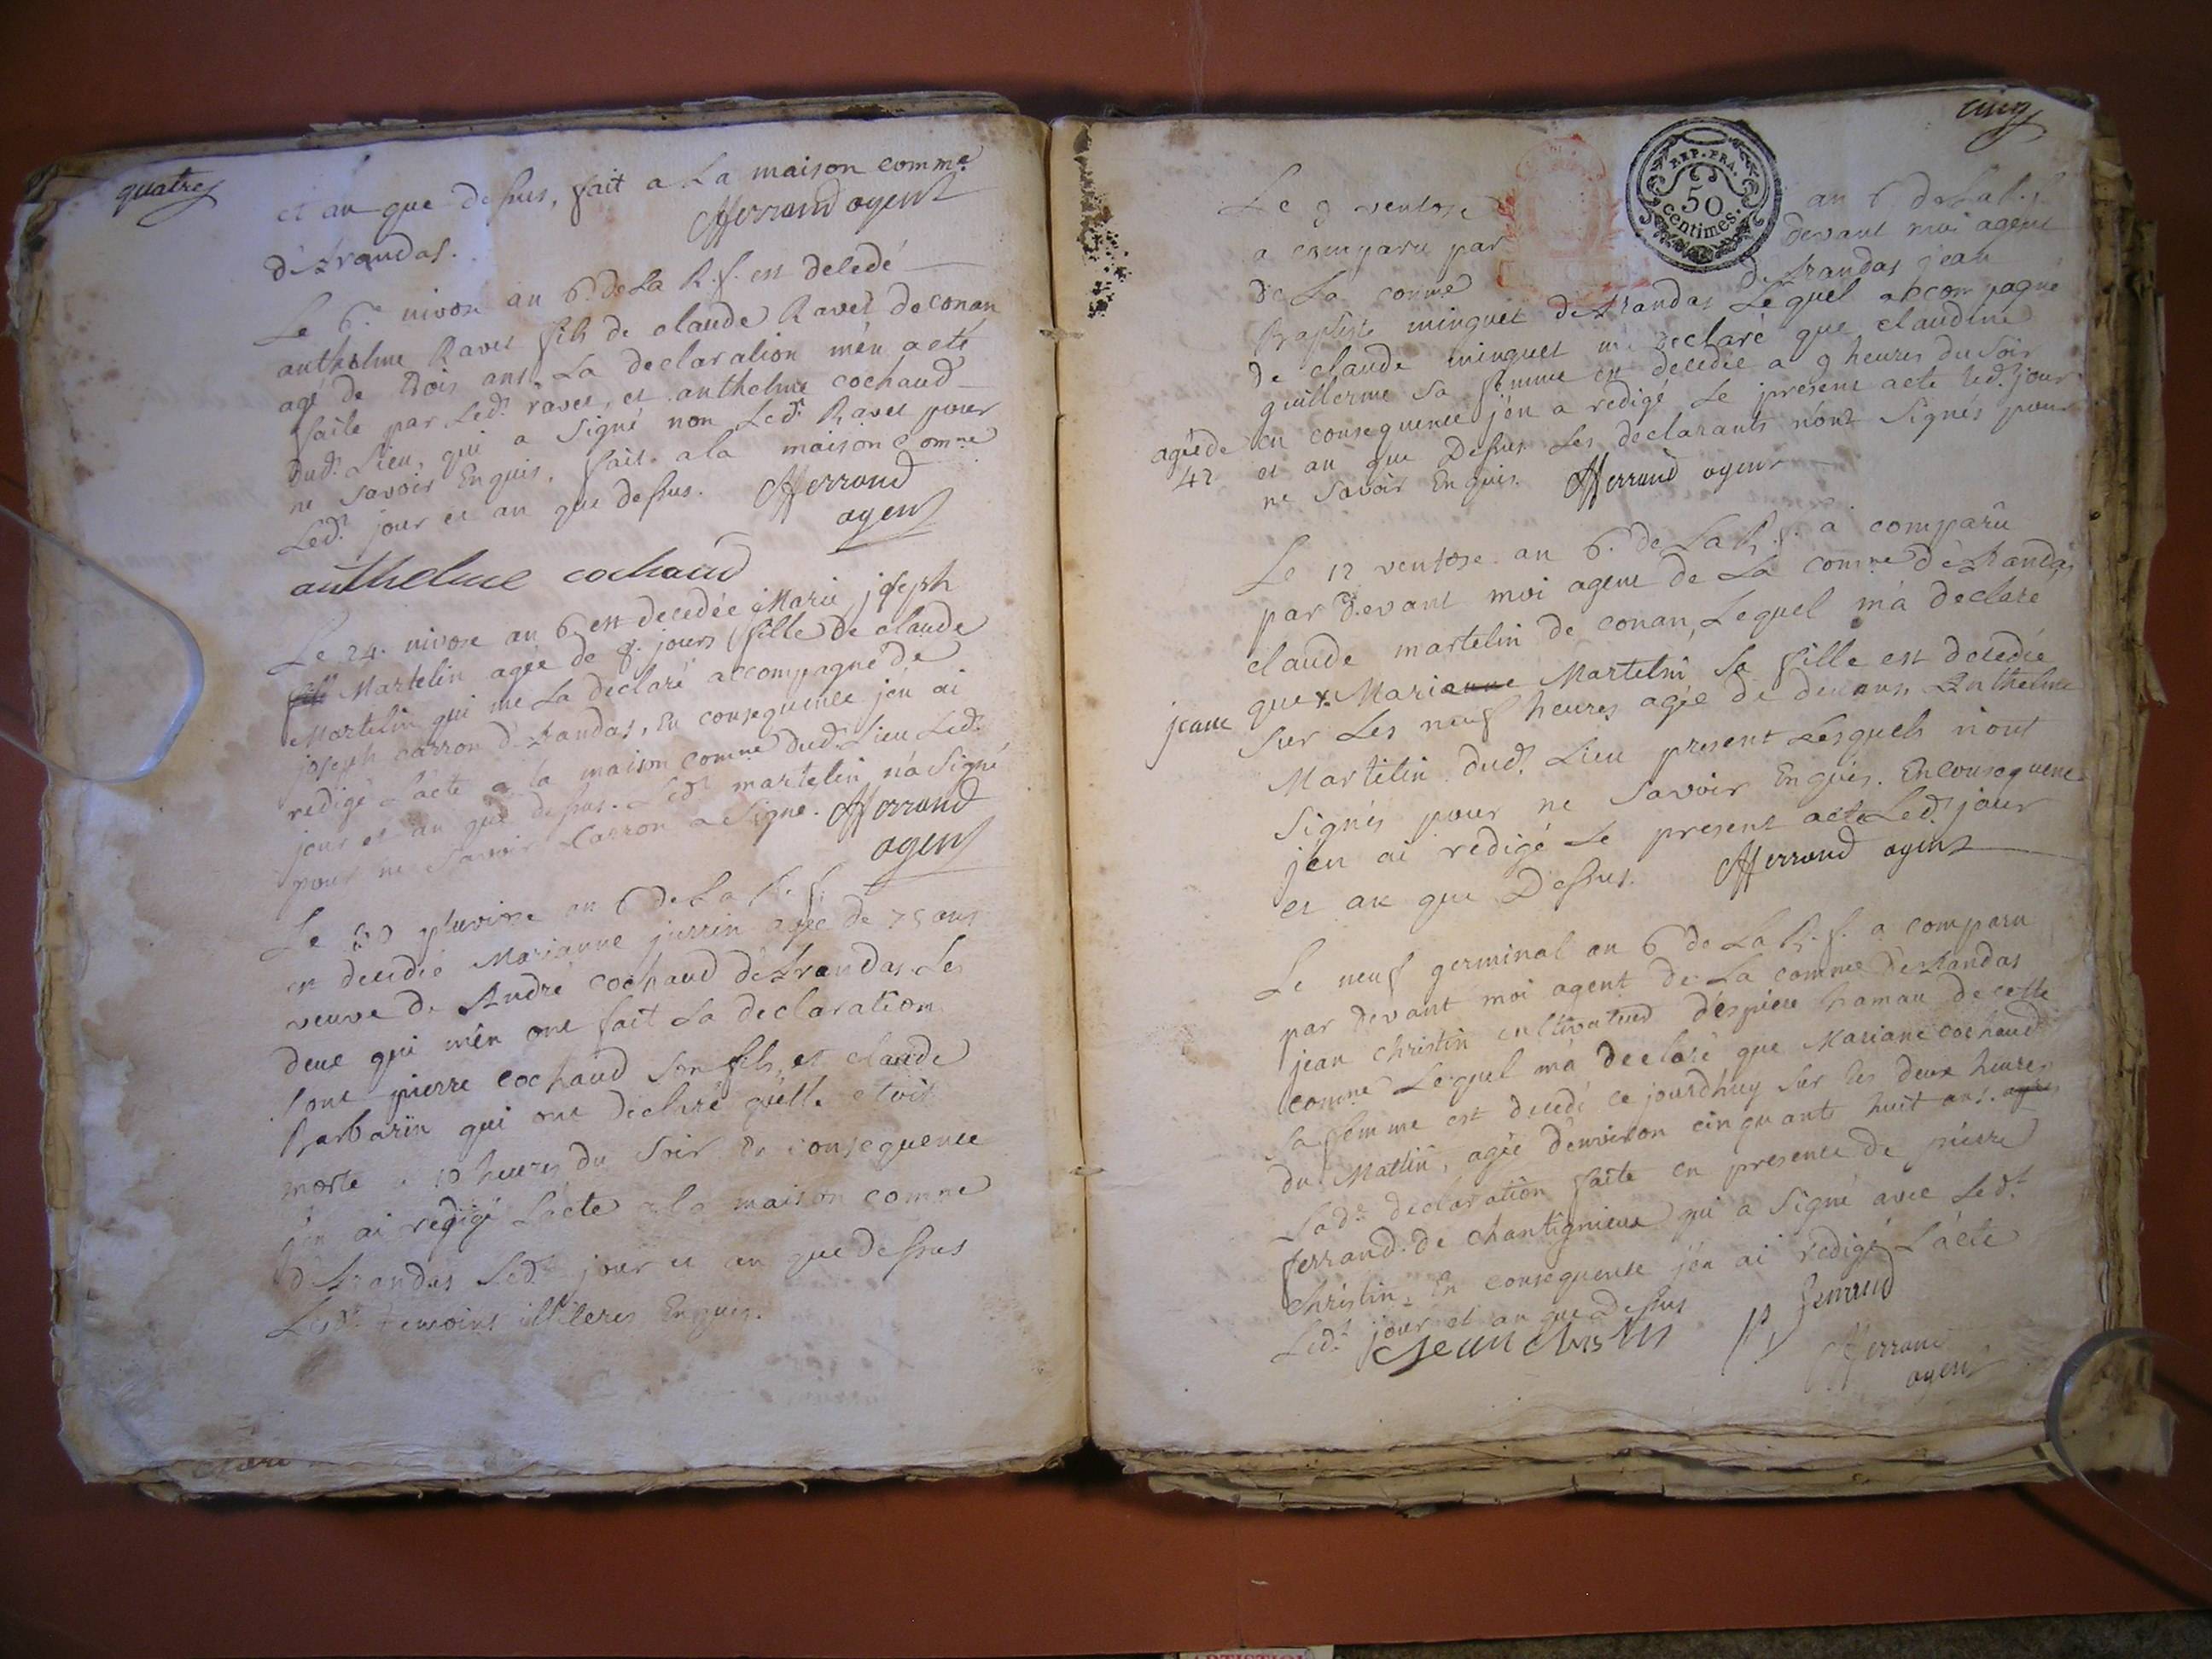 quatre
et an que dessus, fait a La maison comme
d'Arandas. AFerrand agent
Le 6e nivose an 6e de La R. f. est decedé
anthelme Ravet fils de claude Ravet de conan
agé de trois ans, La declaration m'en a eté
faite par Ledt ravet, et anthelme cochaud
dudt Lieu, qui a signé non Ledt Ravet pour
ne savoir Enquis, fait a la maison comne
Ledt jour et an que dessus. AFerrand
agent
anthelme cochaud
Le 24. nivose an 6 est decedée Marie joseph
Martelin agée de 8. jours fille de claude
Martelin qui me La declaré accompagné de
joseph carron d'Arandas, En consequence j'en ai
redigé L'acte a la maison comne dudt Lieu Ledt
jour et an que dessus. Ledt martelin n'a signé
pour ne savoir Carron a signé. AFerrand
agent
Le 30 pluviose an 6 de La R. f.
est decedée Marianne jurrin agée de 75 ans
veuve de André cochaud d'Arandas. Les
deux qui m'en ont fait La declaration
sont pierre cochaud son fils, et claude
Barbarin qui ont declaré quelle etoit
morte a 10 heures du soir En consequence
j'en ai redigé L'acte a la maison comne
d'Arandas Ledt jour et an que dessus
Lesdt temoins illiteres Enquis.
cinq
REP. FRA.
50
centimes.
Le 9 ventose an 6 de La R. f.
a comparu par devant moi agent
de La comne d'Arandas jean
Baptiste minguet d'Arandas Lequel accompagné
de claude minguet m'a declaré que claudine
guillerme sa femme est decedée a 9 heures du soir
agée de 42
en consequence j'en a redigé Le present acte Ledt jour
et an que Dessus Les declarants n'ont signés pour
ne savoir Enquis. AFerrand agent
Le 12 ventose an 6. de La R. f. a comparu
par devant moi agent de La comne d'Arandas
claude martelin de conan, Lequel m'a declaré
jeane
que x Marieanne Martelin sa fille est decedée
sur Les neuf heures agée de deux ans Anthelme
Martelin dudt Lieu present Lesquels n'ont
signés pour ne savoir Enquis. En consequence
j'en ai redigé Le present acte Ledt jour
et an que Dessus. AFerrand agent
Le neuf germinal an 6 de La R. f. a comparu
par devant moi agent de La comne d'Arandas
jean christin cultivateur d'espierre hamau de cette
comne Lequel m'a declaré que Mariane cochaud
sa femme est decedé ce jourdhuy sur Les deux heures
du Mattin, agée d'environ cinquante huit ans. agée
Ladte declaration faite en presence de pierre
ferrand de chantignieux qui a signé avec Ledt
christin. En consequence j'en ai redigé L'acte
Ledt jour et an que Dessus
jean christin P, Ferrand
AFerrand
agent